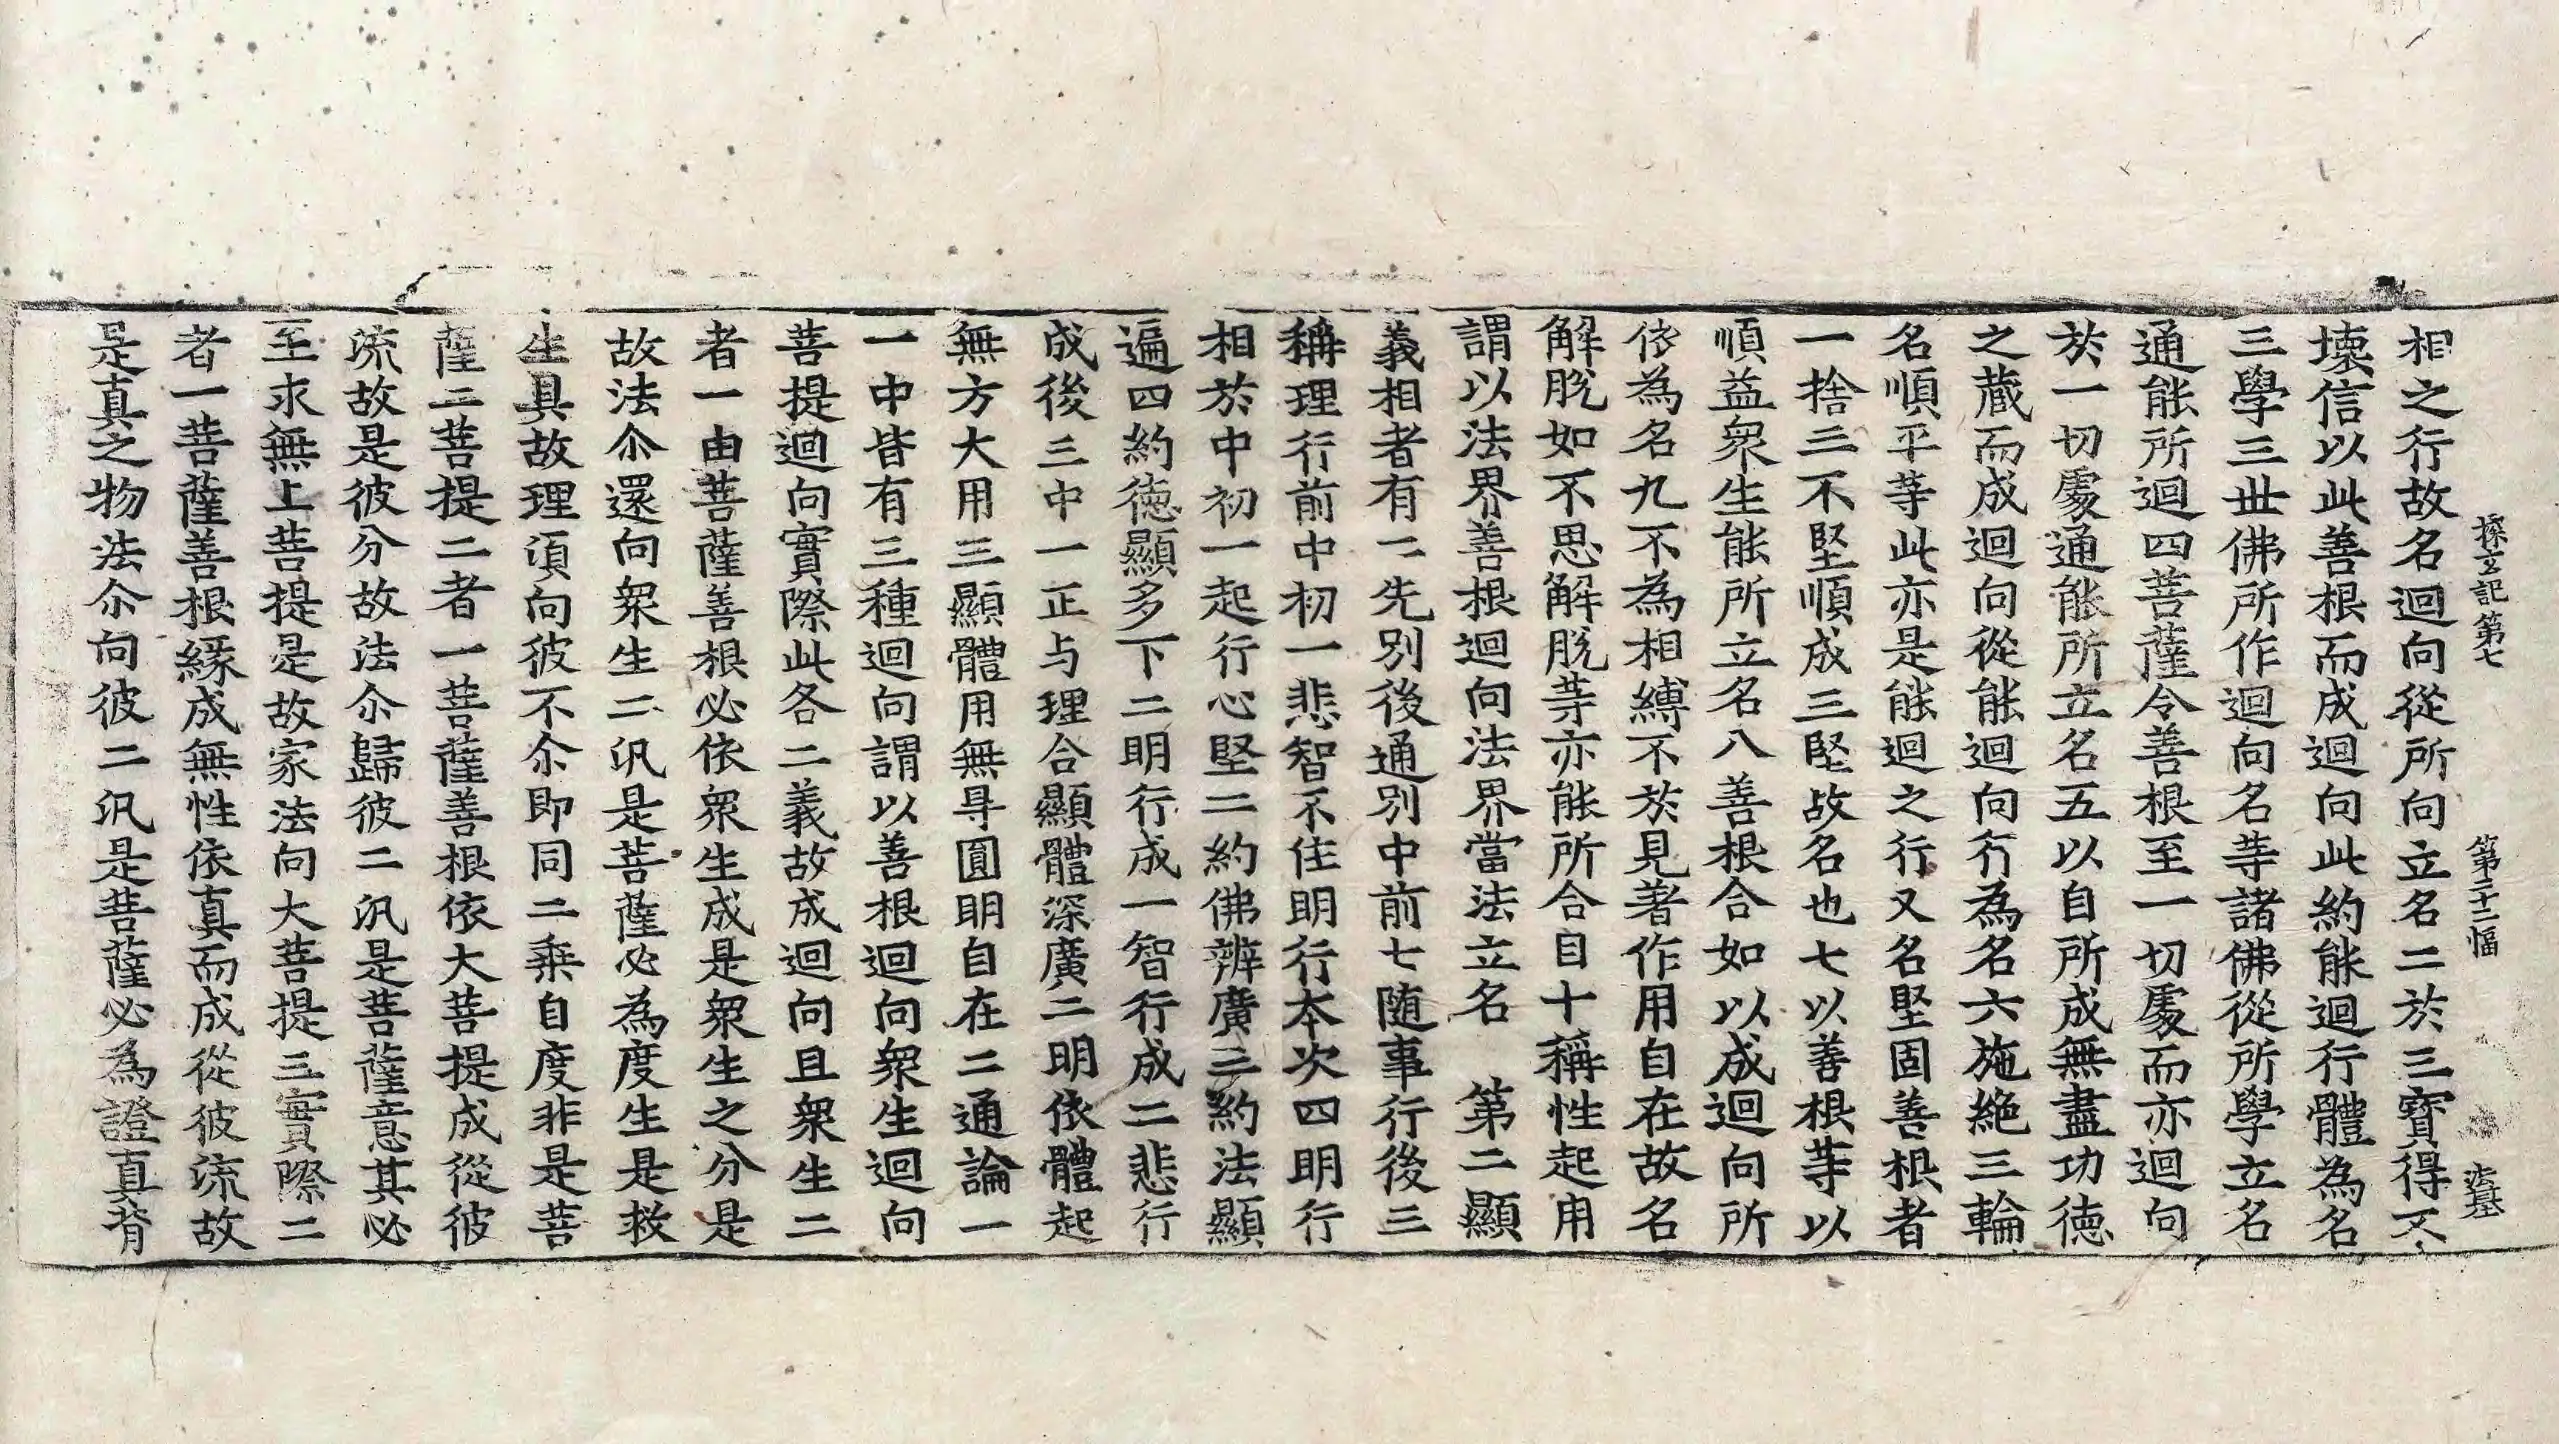 探玄記第七　第三十二幅　法基
相之行故名迴向從所向立名二於三寶得不
壞信以此善根而成迴向此約能迴行體為名
三學三丗佛所作迴向名䓁諸佛從所學立名
通能所迴四菩薩令善根至一切處而亦迴向
於一切處通能所立名五以自所成無盡功德
之藏而成迴向從能迴向行為名六施絶三輪
名順平䓁此亦是能迴之行又名堅固善根者
一捨三不堅順成三堅故名也七以善根䓁以
順益衆生能所立名八善根合如以成迴向所
依為名九不為相縛不於見著作用自在故名
解脫如不思解脫䓁亦能所合目十稱性起用
謂以法界善根迴向法界當法立名　第二顯
義相者有二先別後通別中前七随事行後三
稱理行前中初一悲智不住明行本次四明行
相於中初一起行心堅二約佛辨廣三約法顯
遍四約德顯多下二明行成一智行成二悲行
成後三中一正与理合顯體深廣二明依體起
無方大用三顯體用無㝵圓明自在二通論一
一中皆有三種迴向謂以善根迴向衆生迴向
菩提迴向實際此各二義故成迴向且衆生二
者一由菩薩善根必依衆生成是衆生之分是
故法尒還向衆生二汎是菩薩必為度生是救
生具故理湏向彼不尒即同二乗自度非是菩
薩二菩提二者一菩薩善根依大菩提成從彼
流故是彼分故法尒歸彼二汎是菩薩意其必
至求無上菩提是故家法向大菩提三實際二
者一菩薩善根緣成無性依真而成從彼流故
是真之物法尒向彼二汎是菩薩必為證真背